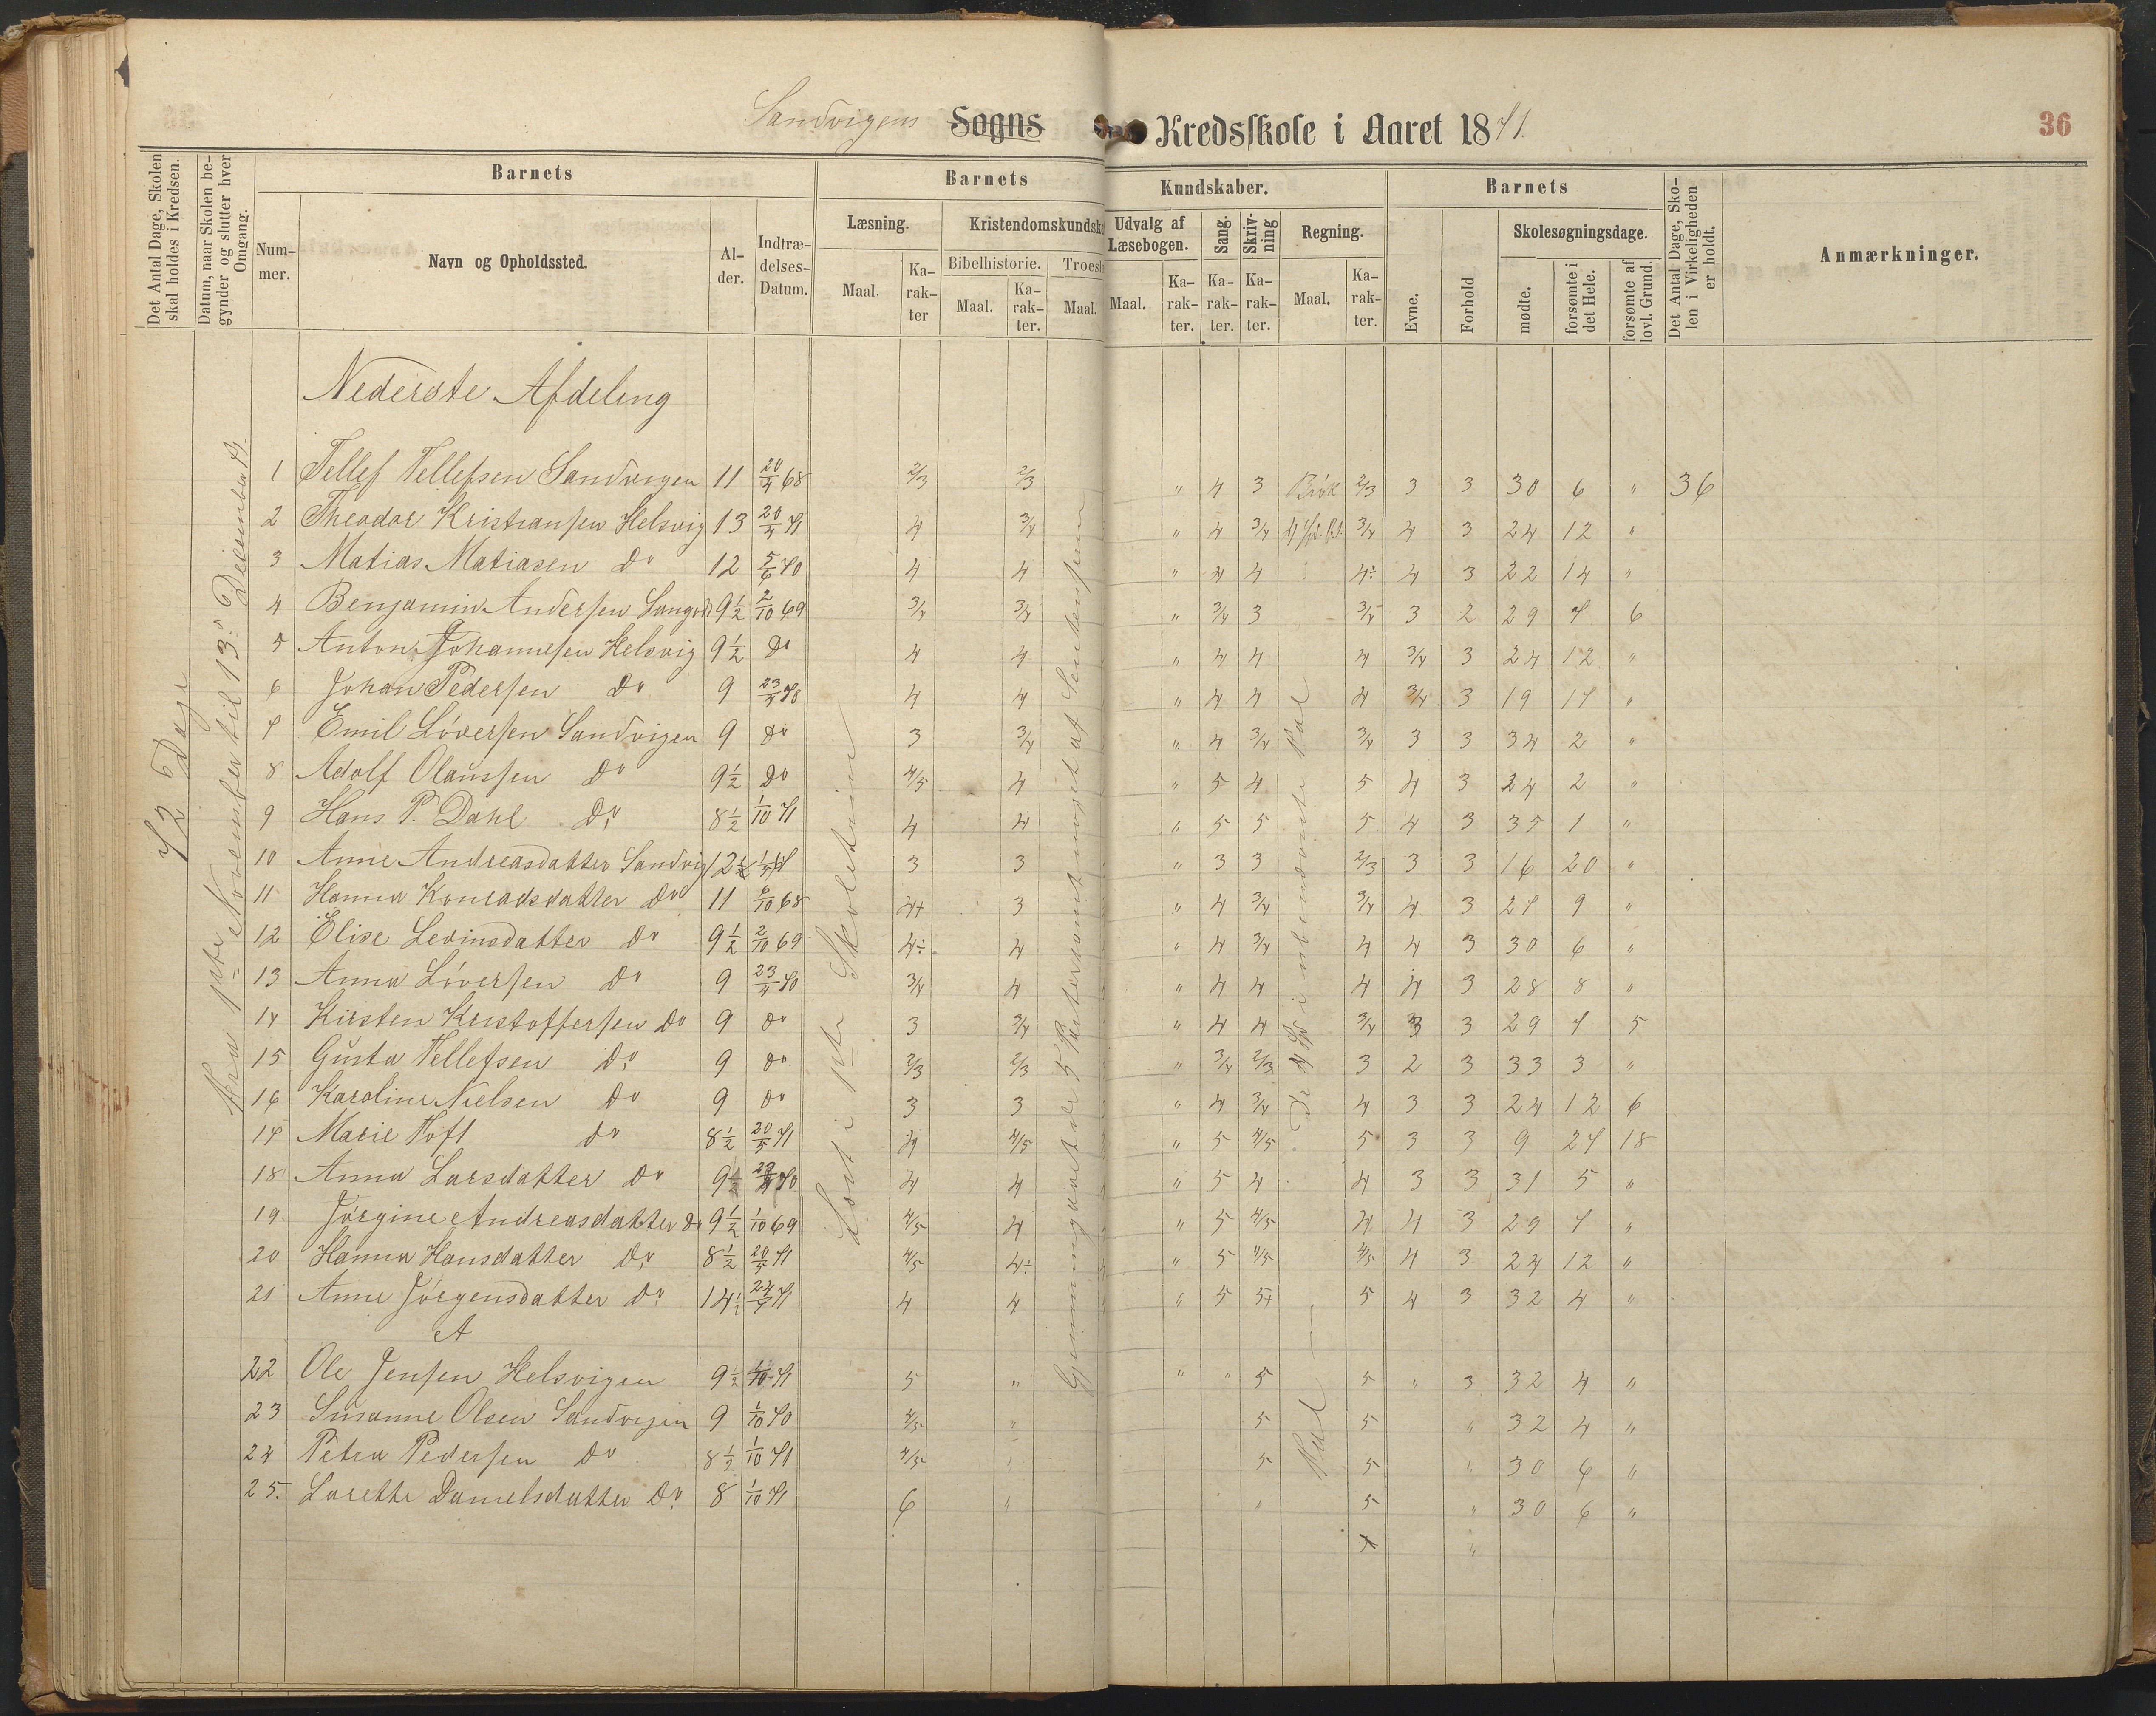 Sandvigens Sogns Kredsskole i Aaret 1871.
36
Det Antal Dage, Skolen skal holdes i Kredsen.
Datum, naar Skolen begynder og slutter hver Omgang.
Barnets
Nummer.
Navn og Opholdssted.
Alder.
Indtrædelses-Datum.
Barnets
Kundskaber.
Læsning.
Maal.
Karakter
Kristendomskundska
Bibelhistorie.
Maal.
Karakter.
Troesl
Maal.
Udvalg af Læsebogen.
Maal.
Karakter.
Sang.
Karakter.
Skrivning
Karakter.
Regning.
Maal.
Karakter.
Barnets
Evne.
Forhold
Skolesøgningsdage.
mødte.
forsømte i det Hele.
forsømte af lovl. Grund.
Det Antal Dage, Skolen i Virkeligheden er holdt.
Anmærkninger.
72 Dage
Fra 1ste November til 13de December 71.
Læst i 1ste Skoletrin
Nederste Afdeling
1 Tellef Tellefsen Sandvigen 11 20/4 68 2/3 2/3 " 4 3 Brøk 2/3 3 3 30 6 " 36
2 Theodor Kristiansen Helsvig 13 20/4 71 4 3/4 " 4 3/4 3/4 4 3 24 12 "
3 Matias Matiasen Do 12 5/6 70 4 4 " 4 4 4÷ 4 3 22 14 "
4 Benjamin Andersen 9½ 2/10 69 3/4 3/4 " 3/4 3 3/4 3 2 29 7 6
5 Anton Johannesen Helsvig 9½ Do 4 4 " 4 4 4 3/4 3 24 12 "
6 Johan Pedersen Do 9 23/4 70 4 4 " 4 4 4 3/4 3 19 17 "
7 Emil Løversen Sandvigen 9 Do 3 3/4 " 4 3/4 3/4 3 3 34 2 "
8 Adolf Olaussen Do 9½ Do 4/5 4 " 5 4 5 4 3 34 2 "
9 Hans P. Dahl Do 8½ 1/10 71 4 4 " 5 5 5 4 3 35 1 "
10 Anne Andreasdatter Sandvig 12½ 3 3 " 3 3 2/3 3 3 16 20 "
11 Hanna Konradsdatter Do 11 6/10 68 4+ 3 " 4 3/4 3/4 4 3 27 9 "
12 Elise Levinsdatter Do 9½ 2/10 69 4÷ 4 " 4 3/4 4 4 3 30 6 "
13 Anna Løversen Do 9 23/4 70 3/4 4 " 4 4 4 4 3 28 8 "
14 Kirsten Kristoffersen Do 9 Do 3 3/4 " 4 4 3/4 3 3 29 7 5
15 Gusta Tellefsen Do 9 Do 2/3 2/3 " 3/4 2/3 3 2 3 33 3 "
16 Karoline Nielsen Do 9 Do 3 3 " 4 3/4 4 3 3 24 12 6
17 Marie Toft Do 8½ 20/5 71 4 4/5 " 5 4/5 5 3 3 9 27 18
18 Anna Larsdatter Do 9½ 4 4 " 5 4 4 3 3 31 5 "
19 Jørgine Andreasdatter Do 9½ 1/10 69 4/5 4 " 5 4/5 4 4 3 29 7 "
20 Hanna Hansdatter Do 8½ 20/5 71 4/5 4÷ " 5 4/5 4/5 4 3 24 12 "
21 Anne Jørgensdatter Do 4 4 " 5 5+ 5 4 3 32 4 "
A
22 Ole Jensen Helsvigen 9½ 1/10 71 5 " " " 5 5 " 3 32 4 "
23 Susanne Olsen Sandvigen 9 1/10 70 4/5 " 5 5 " 32 4 "
24 Petra Pedersen Do 8½ 1/10 71 4/5 " 5 5 " 30 6 "
25. Lorette Danielsdatter Do 8 1/10 71 6 " " 5 " 30 6 "